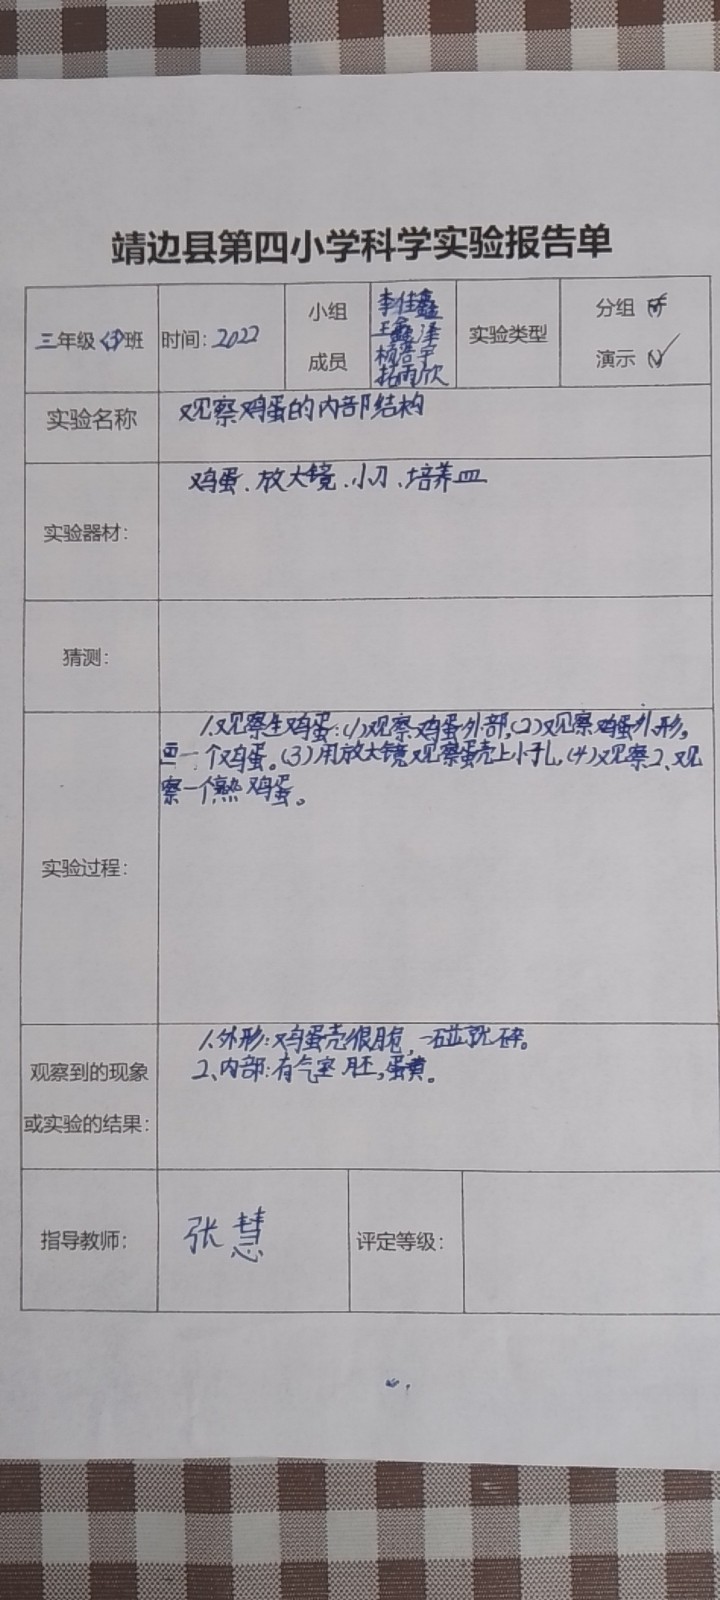 靖边县第四小学科学实验报告单
三年级(3)班
时间:2022
小组
成员
李佳鑫
王鑫泽
杨浩宇
拓雨欣
实验类型
分组
演示
实验名称
观察鸡蛋的内部结构
实验器材:
鸡蛋、放大镜、小刀、培养皿
猜测:
实验过程:
1.观察生鸡蛋:(1)观察鸡蛋外部,(2)观察鸡蛋外形,
画一个鸡蛋。(3)用放大镜观察蛋壳上小孔,(4)观察2、观
察一个熟鸡蛋。
观察到的现象
或实验的结果:
1.外形:鸡蛋壳很脆,一碰就碎。
2、内部:有气室胚,蛋黄。
指导教师:
张慧
评定等级: